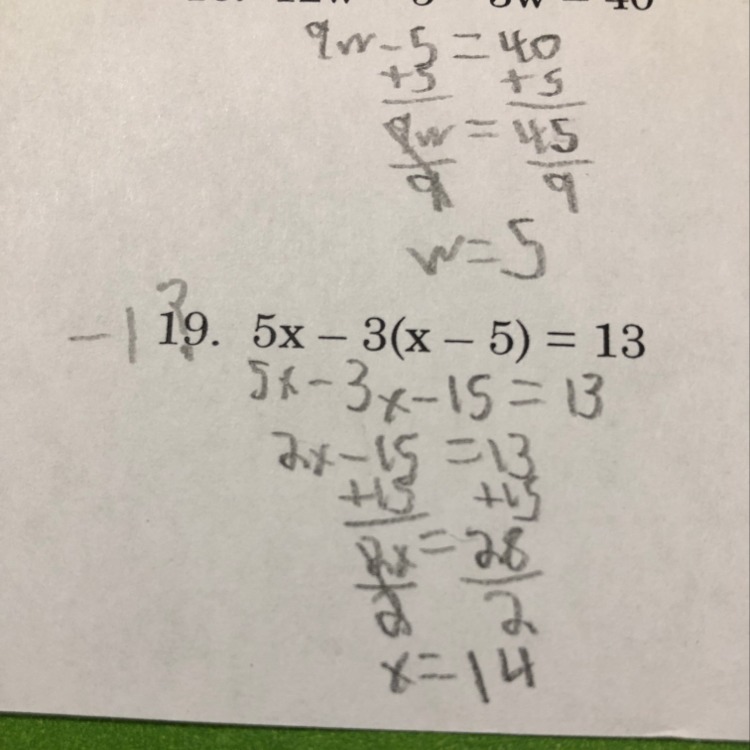 9w - 5 = 40
+5 +5
9w = 45
9 9
w = 5
-1 ?
19. 5x – 3(x – 5) = 13
5x - 3x - 15 = 13
2x - 15 = 13
+15 +15
2x = 28
2 2
x = 14